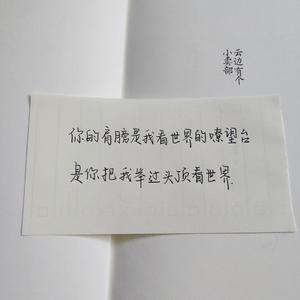 云边有个
小卖部
你的肩膀是我看世界的嘹望台
是你把我举过头顶看世界.